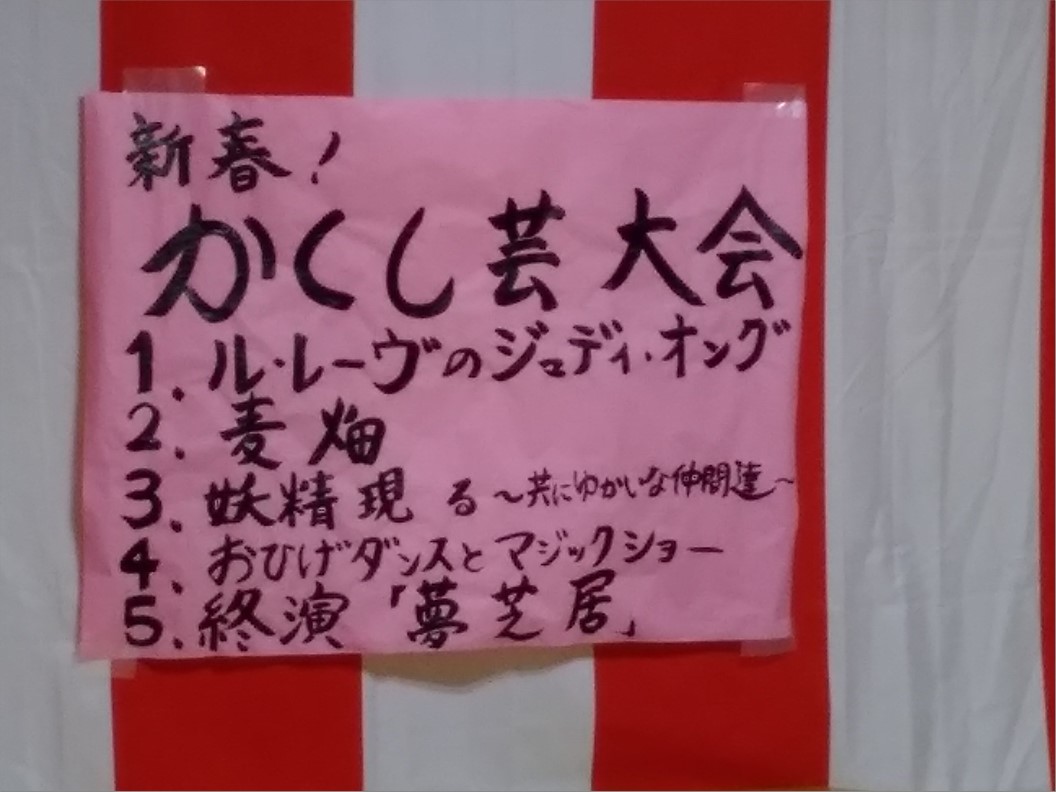 新春!
かくし芸大会
1. ル・レーヴのジュディ・オング
2. 麦畑
3. 妖精現る ～共にゆかいな仲間達～
4. おひげダンスとマジックショー
5. 終演「夢芝居」